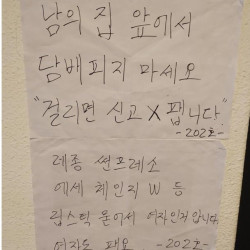 남의 집 앞에서
담배피지 마세오
"걸리면 신고 X 팹니다"
-202호-
레종 썬프레소
에세 체인지 W 등
립스틱 묻어서 여자인거 압니다
여자도 패요 -202호-